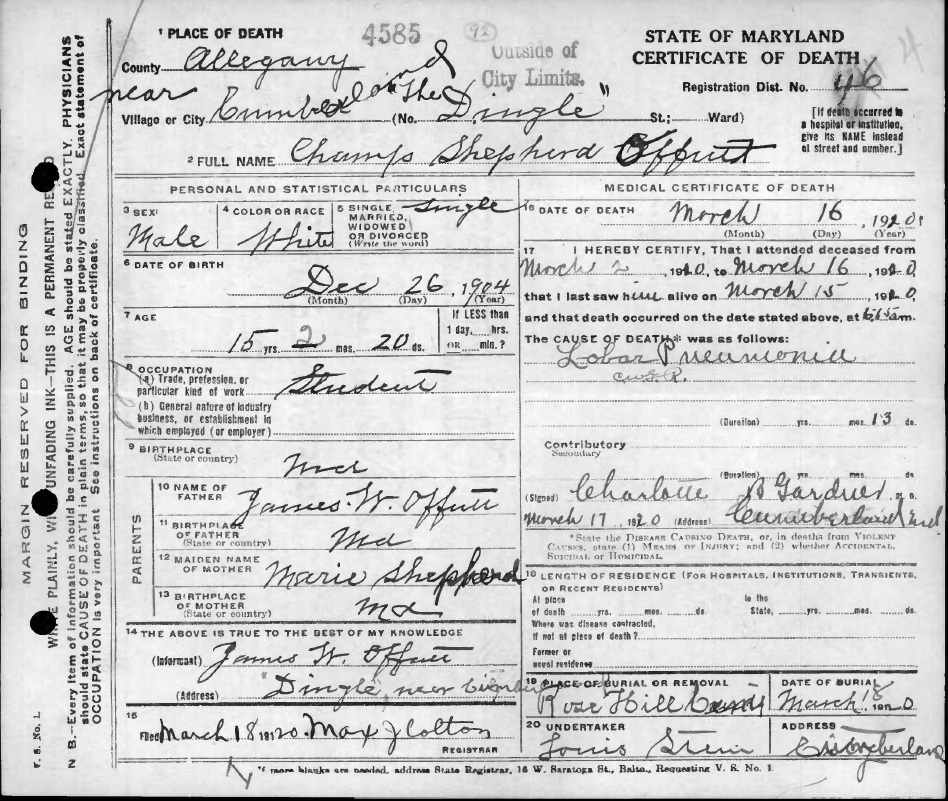 4585
92
Outside of
City Limits.
1 PLACE OF DEATH
County Allegany
near
Village or City Cumberland (No. "The Dingle" St.; Ward)
2 FULL NAME Champs Shepherd Offutt
STATE OF MARYLAND
CERTIFICATE OF DEATH
Registration Dist. No. 46
[If death occurred in
a hospital or institution,
give its NAME instead
of street and number.]
PERSONAL AND STATISTICAL PARTICULARS
3 SEX
Male
4 COLOR OR RACE
White
5 SINGLE,
MARRIED,
WIDOWED
OR DIVORCED
(Write the word)
Single
6 DATE OF BIRTH
Dec 26, 1904
(Month) (Day) (Year)
7 AGE
15 yrs. 2 mos. 20 ds.
If LESS than
1 day, hrs.
OR min.?
8 OCCUPATION
(a) Trade, profession, or
particular kind of work Student
(b) General nature of industry
business, or establishment in
which employed (or employer)
9 BIRTHPLACE
(State or country)
Md
PARENTS
10 NAME OF
FATHER James W. Offutt
11 BIRTHPLACE
OF FATHER
(State or country) Md
12 MAIDEN NAME
OF MOTHER Marie Shepherd
13 BIRTHPLACE
OF MOTHER
(State or country) Md
14 THE ABOVE IS TRUE TO THE BEST OF MY KNOWLEDGE
(Informant) James W. Offutt
(Address) "Dingle", near
15
Filed March 18 1920. Max J Colton
REGISTRAR
MEDICAL CERTIFICATE OF DEATH
16 DATE OF DEATH March 16, 1920
(Month) (Day) (Year)
17 I HEREBY CERTIFY, That I attended deceased from
March 2, 1920, to March 16, 1920
that I last saw him alive on March 15, 1920
and that death occurred on the date stated above, at m.
The CAUSE OF DEATH* was as follows:
Lobar Pneumonia
(Duration) yrs. mos. 13 ds.
Contributory
Secondary
(Duration) yrs. mos. ds.
(Signed) Charlotte B Gardner M. D.
March 17, 1920 (Address) Cumberland Md
*State the DISEASE CAUSING DEATH, or, in deaths from VIOLENT
CAUSES, state (1) MEANS OF INJURY; and (2) whether ACCIDENTAL,
SUICIDAL or HOMICIDAL.
18 LENGTH OF RESIDENCE (FOR HOSPITALS, INSTITUTIONS, TRANSIENTS,
OR RECENT RESIDENTS)
At place In the
of death yrs. mos. ds. State, yrs. mos. ds.
Where was disease contracted,
if not at place of death?
Former or
usual residence
19 PLACE OF BURIAL OR REMOVAL
Rose Hill
DATE OF BURIAL
March 18 1920
20 UNDERTAKER
Louis Stein
ADDRESS
Cumberland
*If more blanks are needed, address State Registrar, 16 W. Saratoga St., Balto., Requesting V. S. No. 1
V. S. No. 1.
MARGIN RESERVED FOR BINDING
WRITE PLAINLY, WITH UNFADING INK—THIS IS A PERMANENT RECORD
N B.—Every item of information should be carefully supplied. AGE should be stated EXACTLY. PHYSICIANS
should state CAUSE OF DEATH in plain terms, so that it may be properly classified. Exact statement of
OCCUPATION is very important See instructions on back of certificate.